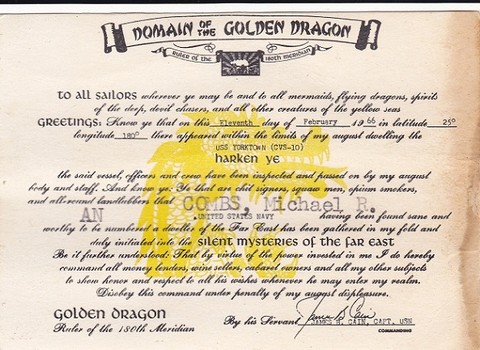 DOMAIN OF THE GOLDEN DRAGON
RULER OF THE 180TH MERIDIAN
TO ALL SAILORS wherever ye may be and to all mermaids, flying dragons, spirits
of the deep, devil chasers, and all other creatures of the yellow seas
GREETINGS: Know ye that on this Eleventh day of February 1966 in latitude 25°
longitude 180° there appeared within the limits of my august dwelling the
USS YORKTOWN (CVS-10)
HARKEN YE
the said vessel, officers and crew have been inspected and passed on by my august
body and staff. And know ye: Ye that are chit signers, squaw men, opium smokers,
and all-round landlubbers that COMBS, Michael R.
AN UNITED STATES NAVY having been found sane and
worthy to be numbered a dweller of the Far East has been gathered in my fold and
duly initiated into the SILENT MYSTERIES OF THE FAR EAST
Be it further understood: That by virtue of the power invested in me I do hereby
command all money lenders, wine sellers, cabaret owners and all my other subjects
to show honor and respect to all his wishes whenever he may enter my realm.
Disobey this command under penalty of my august displeasure.
GOLDEN DRAGON
Ruler of the 180th Meridian
By his Servant James B Cain
JAMES B. CAIN, CAPT. USN
COMMANDING